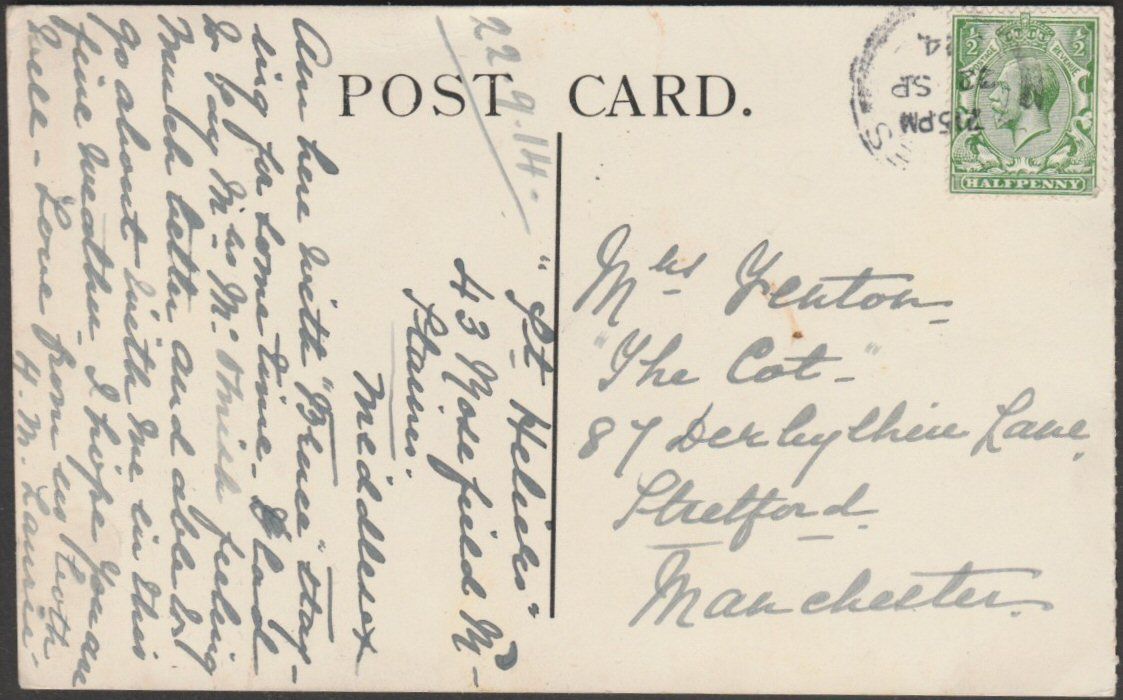 POST CARD.
22.9.14.
"St Heliers"
43 Rosefield Rd
Staines.
Middlesex
Am here with "Bruce" stay-
ing for some time. Glad
to say Mrs Mc feeling
much better and able to
go about with me in this
fine weather. I hope you are
well - Love from us both
H. M.
2.15 PM
22 SP
HALFPENNY
Mrs Fenton
"The Cot"
87 Derbyshire Lane
Stretford
Manchester.